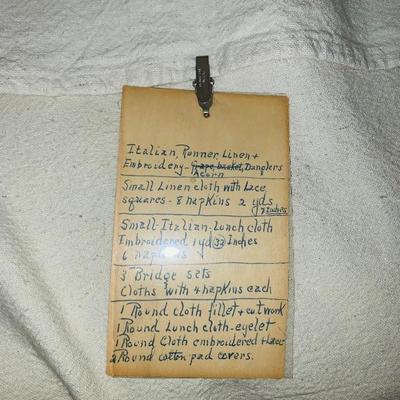 Italian, Runner, Linen +
Embroidery - Grape, basket, Danglers
Acorn
Small Linen cloth with Lace
squares - 8 napkins 2 yds
7 Inches
Small-Italian-Lunch cloth
Embroidered 1 yd 32 Inches
6 napkins
3 Bridge sets
Cloths with 4 napkins each
1 Round cloth fillet + cutwork
1 Round Lunch cloth-eyelet
1 Round Cloth embroidered + Lace
2 Round cotton pad covers.